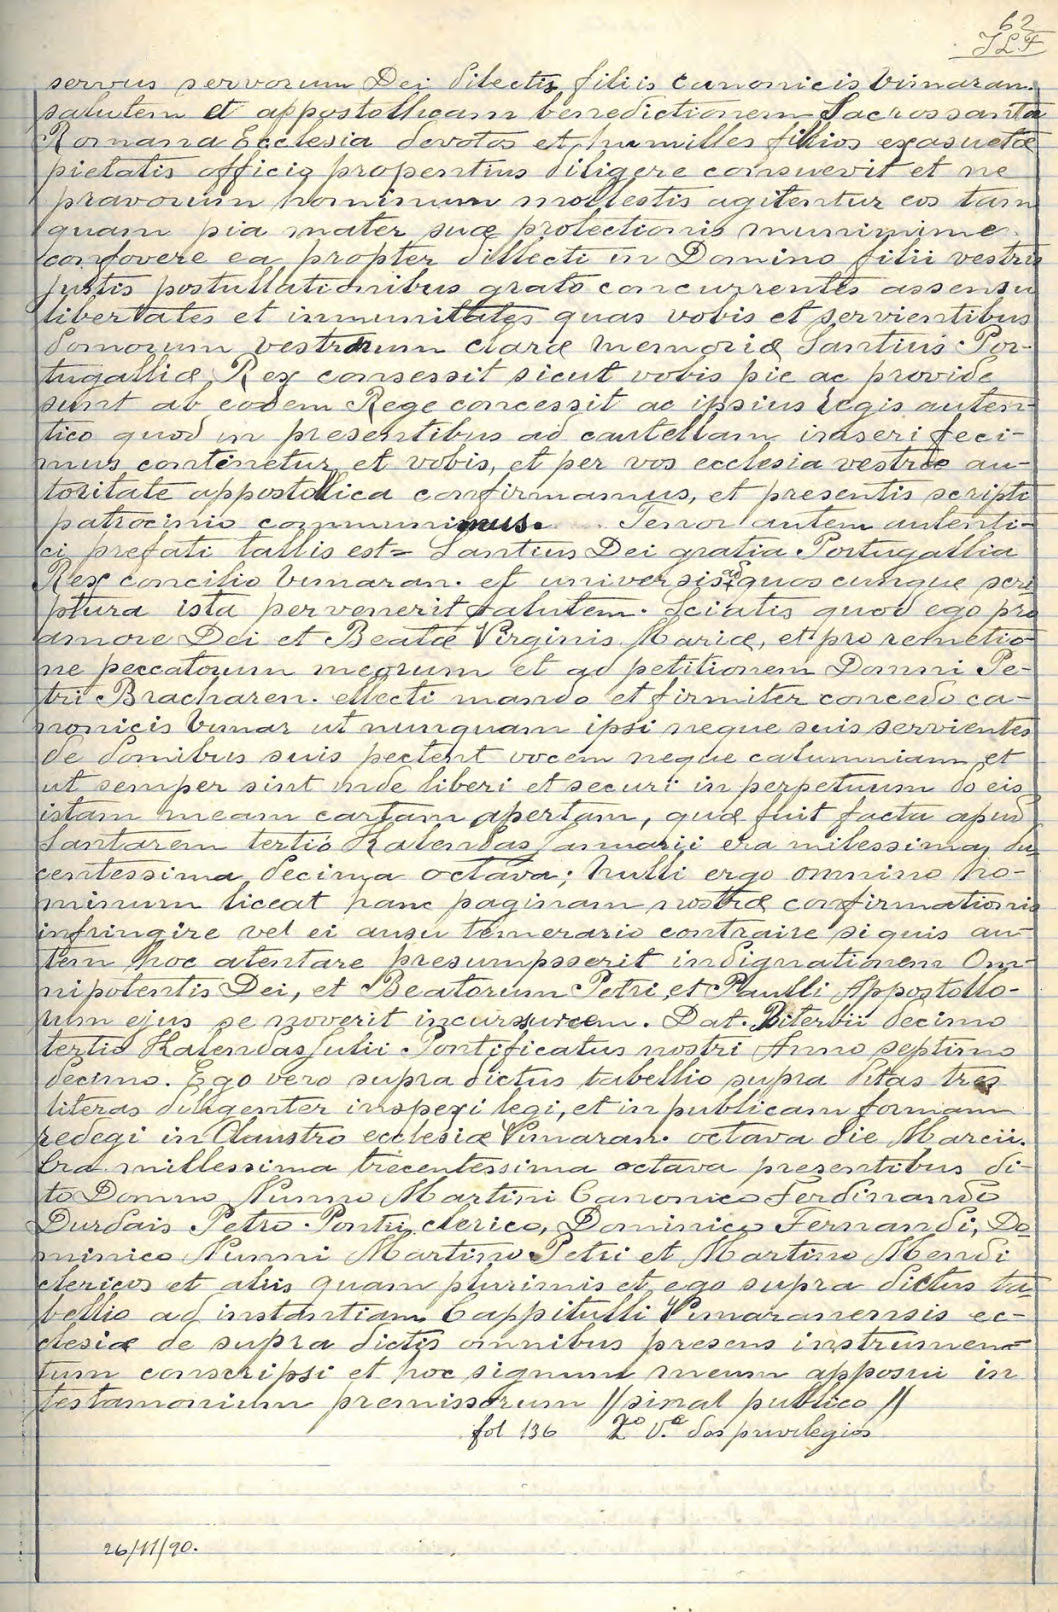 62
JLF
servus servorum Dei dilectis filiis canonicis Vimaran.
salutem et appostollicam benedictionem Sacrossanta
Romana Ecclesia devotos et humilles filios exasuetæ
pietatis officiis propentius diligere consuevit et ne
pravorum hominum mollestis agitentur eos tam
quam pia mater suæ protectionis munimime
confovere ea propter dillecti in Domino filii vestris
justis postullationibus grato concurrentes assensu
libertates et inmunitates quas vobis et servientibus
domorum vestrorum claræ memoriæ Santius Por-
tugalliæ Rex consessit sicut vobis pie ac provide
sunt ab eodem Rege concessit ac ipsius regis auten-
tico quod in presentibus ad cautellam inseri feci-
mus continetur et vobis, et per vos ecclesia vestræ au-
toritate appostollica confirmamus, et presentis scripti
patrocinio communimus. Tenor autem autenti-
ci prefati tallis est = Santius Dei gratia Portugallia
Rex concilio Vimaran. et universis ad quos cumque scri
ptura ista pervenerit salutem. Sciatis quod ego pro
amore Dei et Beatæ Virginis Mariæ, et pro remetio-
ne peccatorum meorum et ad petitionem Domni Pe-
tri Bracharen. ellecti mando et firmiter concedo ca-
nonicis Vimar ut nunquam ipsi neque suis servientes
de domibus suis pectent vocem neque calumniam et
ut semper sint inde liberi et securi in perpetuum do eis
istam meam cartam apertam, quæ fuit facta apud
Santarem tertio Kalendas Januarii era milessima, du
centessima decima octava; Nulli ergo omnino ho-
minum liceat hanc paginam nostræ confirmationis
infringire vel ei ausu temerario contraire si quis au-
tem hoc atentare presumpsserit indignationem Om-
nipotentis Dei, et Beatorum Petri et Paulli Appostollo-
rum ejus se noverit incursurem. Dat. Biterbii decimo
tertio Kalendas Julii Pontificatus nostri Anno septimo
decimo. Ego vero supra dictus tabellio supra ditas tres
literas diligenter inspexi legi, et in publicam formam
redegi in Claustro ecclesiæ Vimaran. octava die Marcii.
Era millessima trecentessima octava presentibus di-
to Domno Nunno Martini Canonico Ferdinando
Durdais Petro Pontij clerico, Dominico Fernandi, Do-
minico Nunni Martino Petri et Martino Mendi
clericos et aliis quam plurimis et ego supra dictus ta
bellio ad instantiam Cappitulli Vimaranensis ec-
clesiæ de supra dictis omnibus presens instrumen-
tum conscripsi et hoc signum meum apposui in
testamonium premissorum // sinal publico //
fol 136 2º V.º dos privilegios
26/11/90.